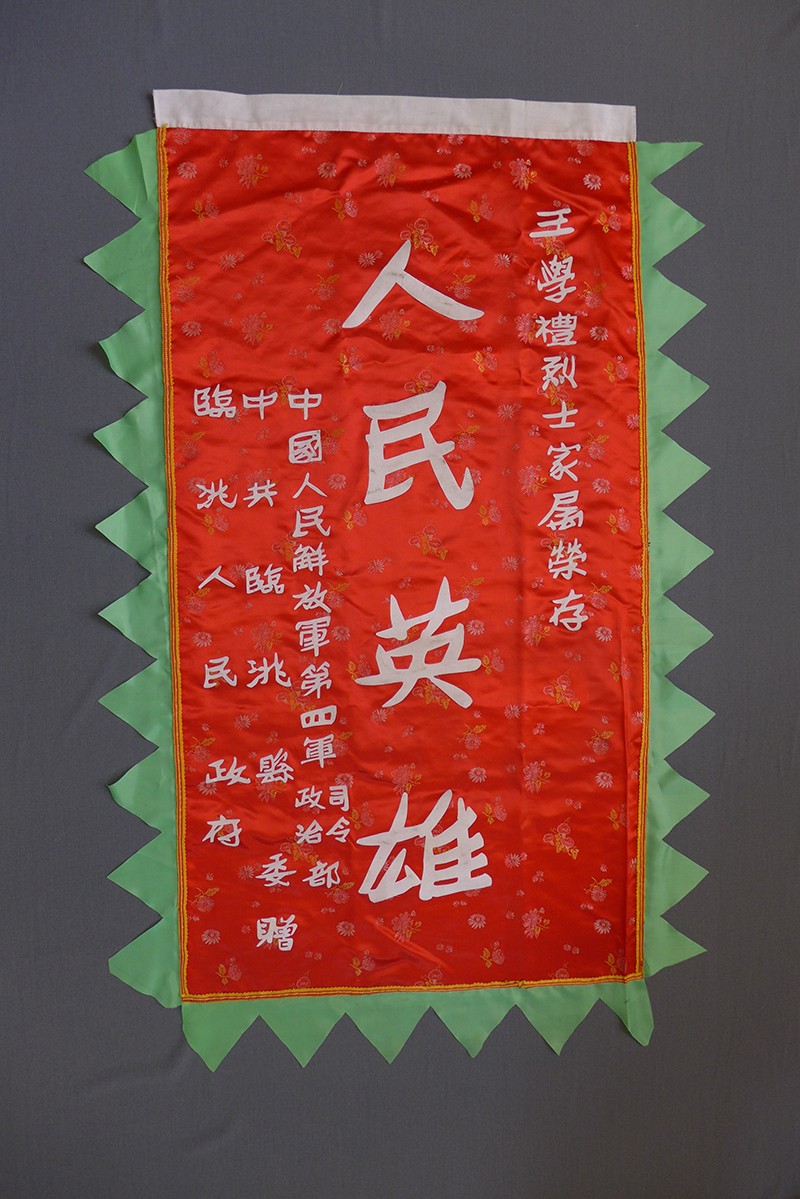 王學禮烈士家属榮存
人民英雄
中國人民解放軍第四軍司令政治部
中共臨洮縣委贈
臨洮人民政府